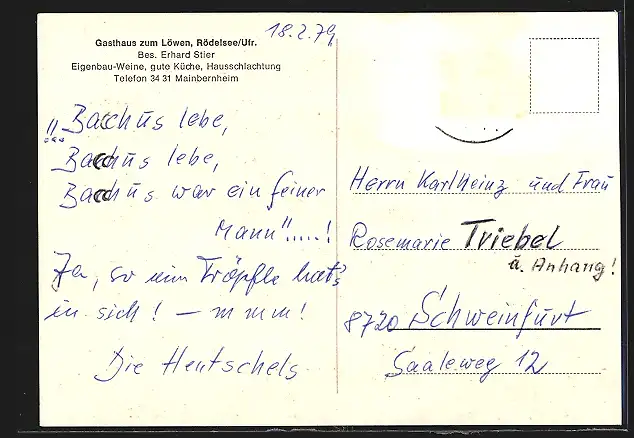 18.2.79
Gasthaus zum Löwen, Rödelsee/Ufr.
Bes. Erhard Stier
Eigenbau-Weine, gute Küche, Hausschlachtung
Telefon 34 31 Mainbernheim
"Bacchus lebe,
Bacchus lebe,
Bacchus war ein feiner
Mann".....!
Ja, so ein Tröpfle hat's
in sich! – m m m!
Die Hentschels
Herrn Karlheinz und Frau
Rosemarie Triebel
u. Anhang!
8720 Schweinfurt
Saaleweg 12